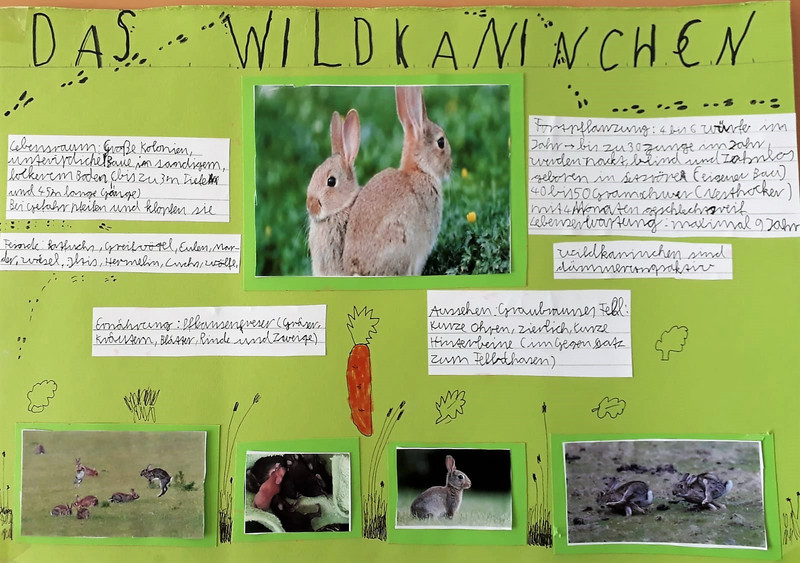 DAS WILDKANINCHEN
Lebensraum: Große Kolonien,
unterirdische Baue im sandigem,
lockerem Boden (bis zu 3m Tiefe
und 45m lange Gänge)
Bei Gefahr pfeifen und klopfen sie
Feinde: Rotfuchs, Greifvögel, Eulen, Mar-
der, Wiesel, Iltis, Hermelin, Luchs, Wölfe,
Ernährung: Pflanzenfreser (Gräser,
Kräutern, Blätter, Rinde und Zweige)
Fortpflanzung: 4 bis 6 würfe im
Jahr → bis zu 30 Junge im Jahr,
werden nakt, blind und Zahnlos
geboren in Setzröhre (eigener Bau)
40 bis 50 Gramm schwer (Nesthocker)
mit 4 Monaten geschlechtsreif
Lebenserwartung: maximal 9 Jahr
Wildkaninchen sind
dämmerungsaktiv
Aussehen: Graubraunes Fell:
Kurze Ohren, zierlich, kurze
Hinterbeine (im Gegensatz
zum Feldhasen)